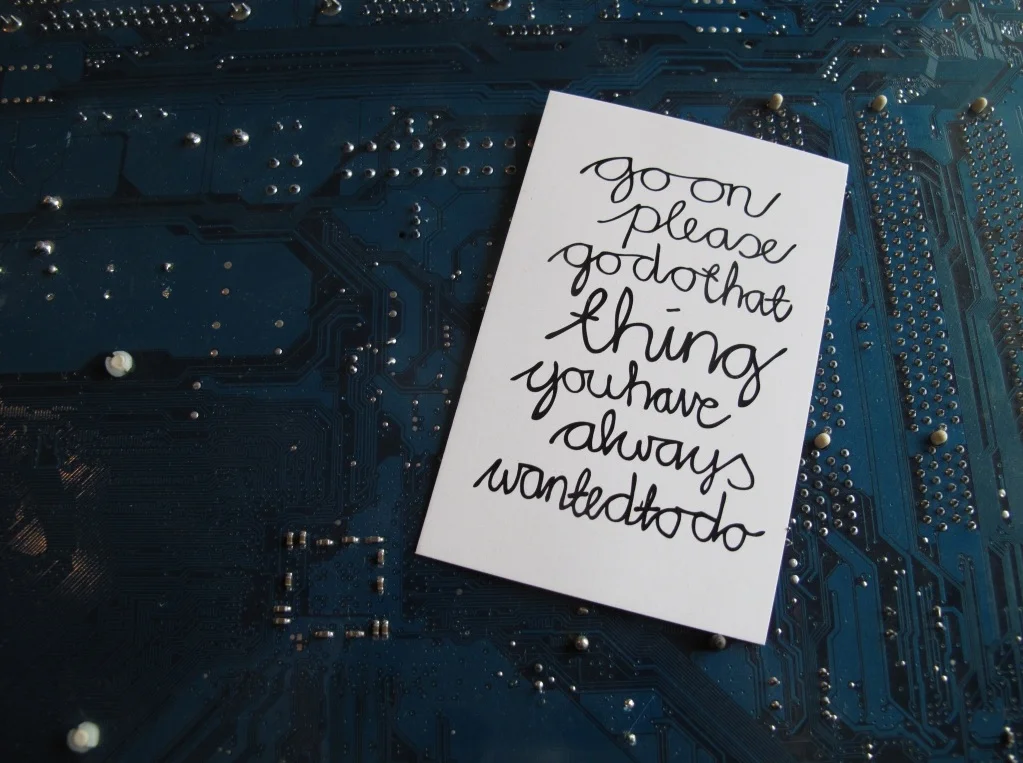 go on
please
go do that
thing
you have
always
wanted to do